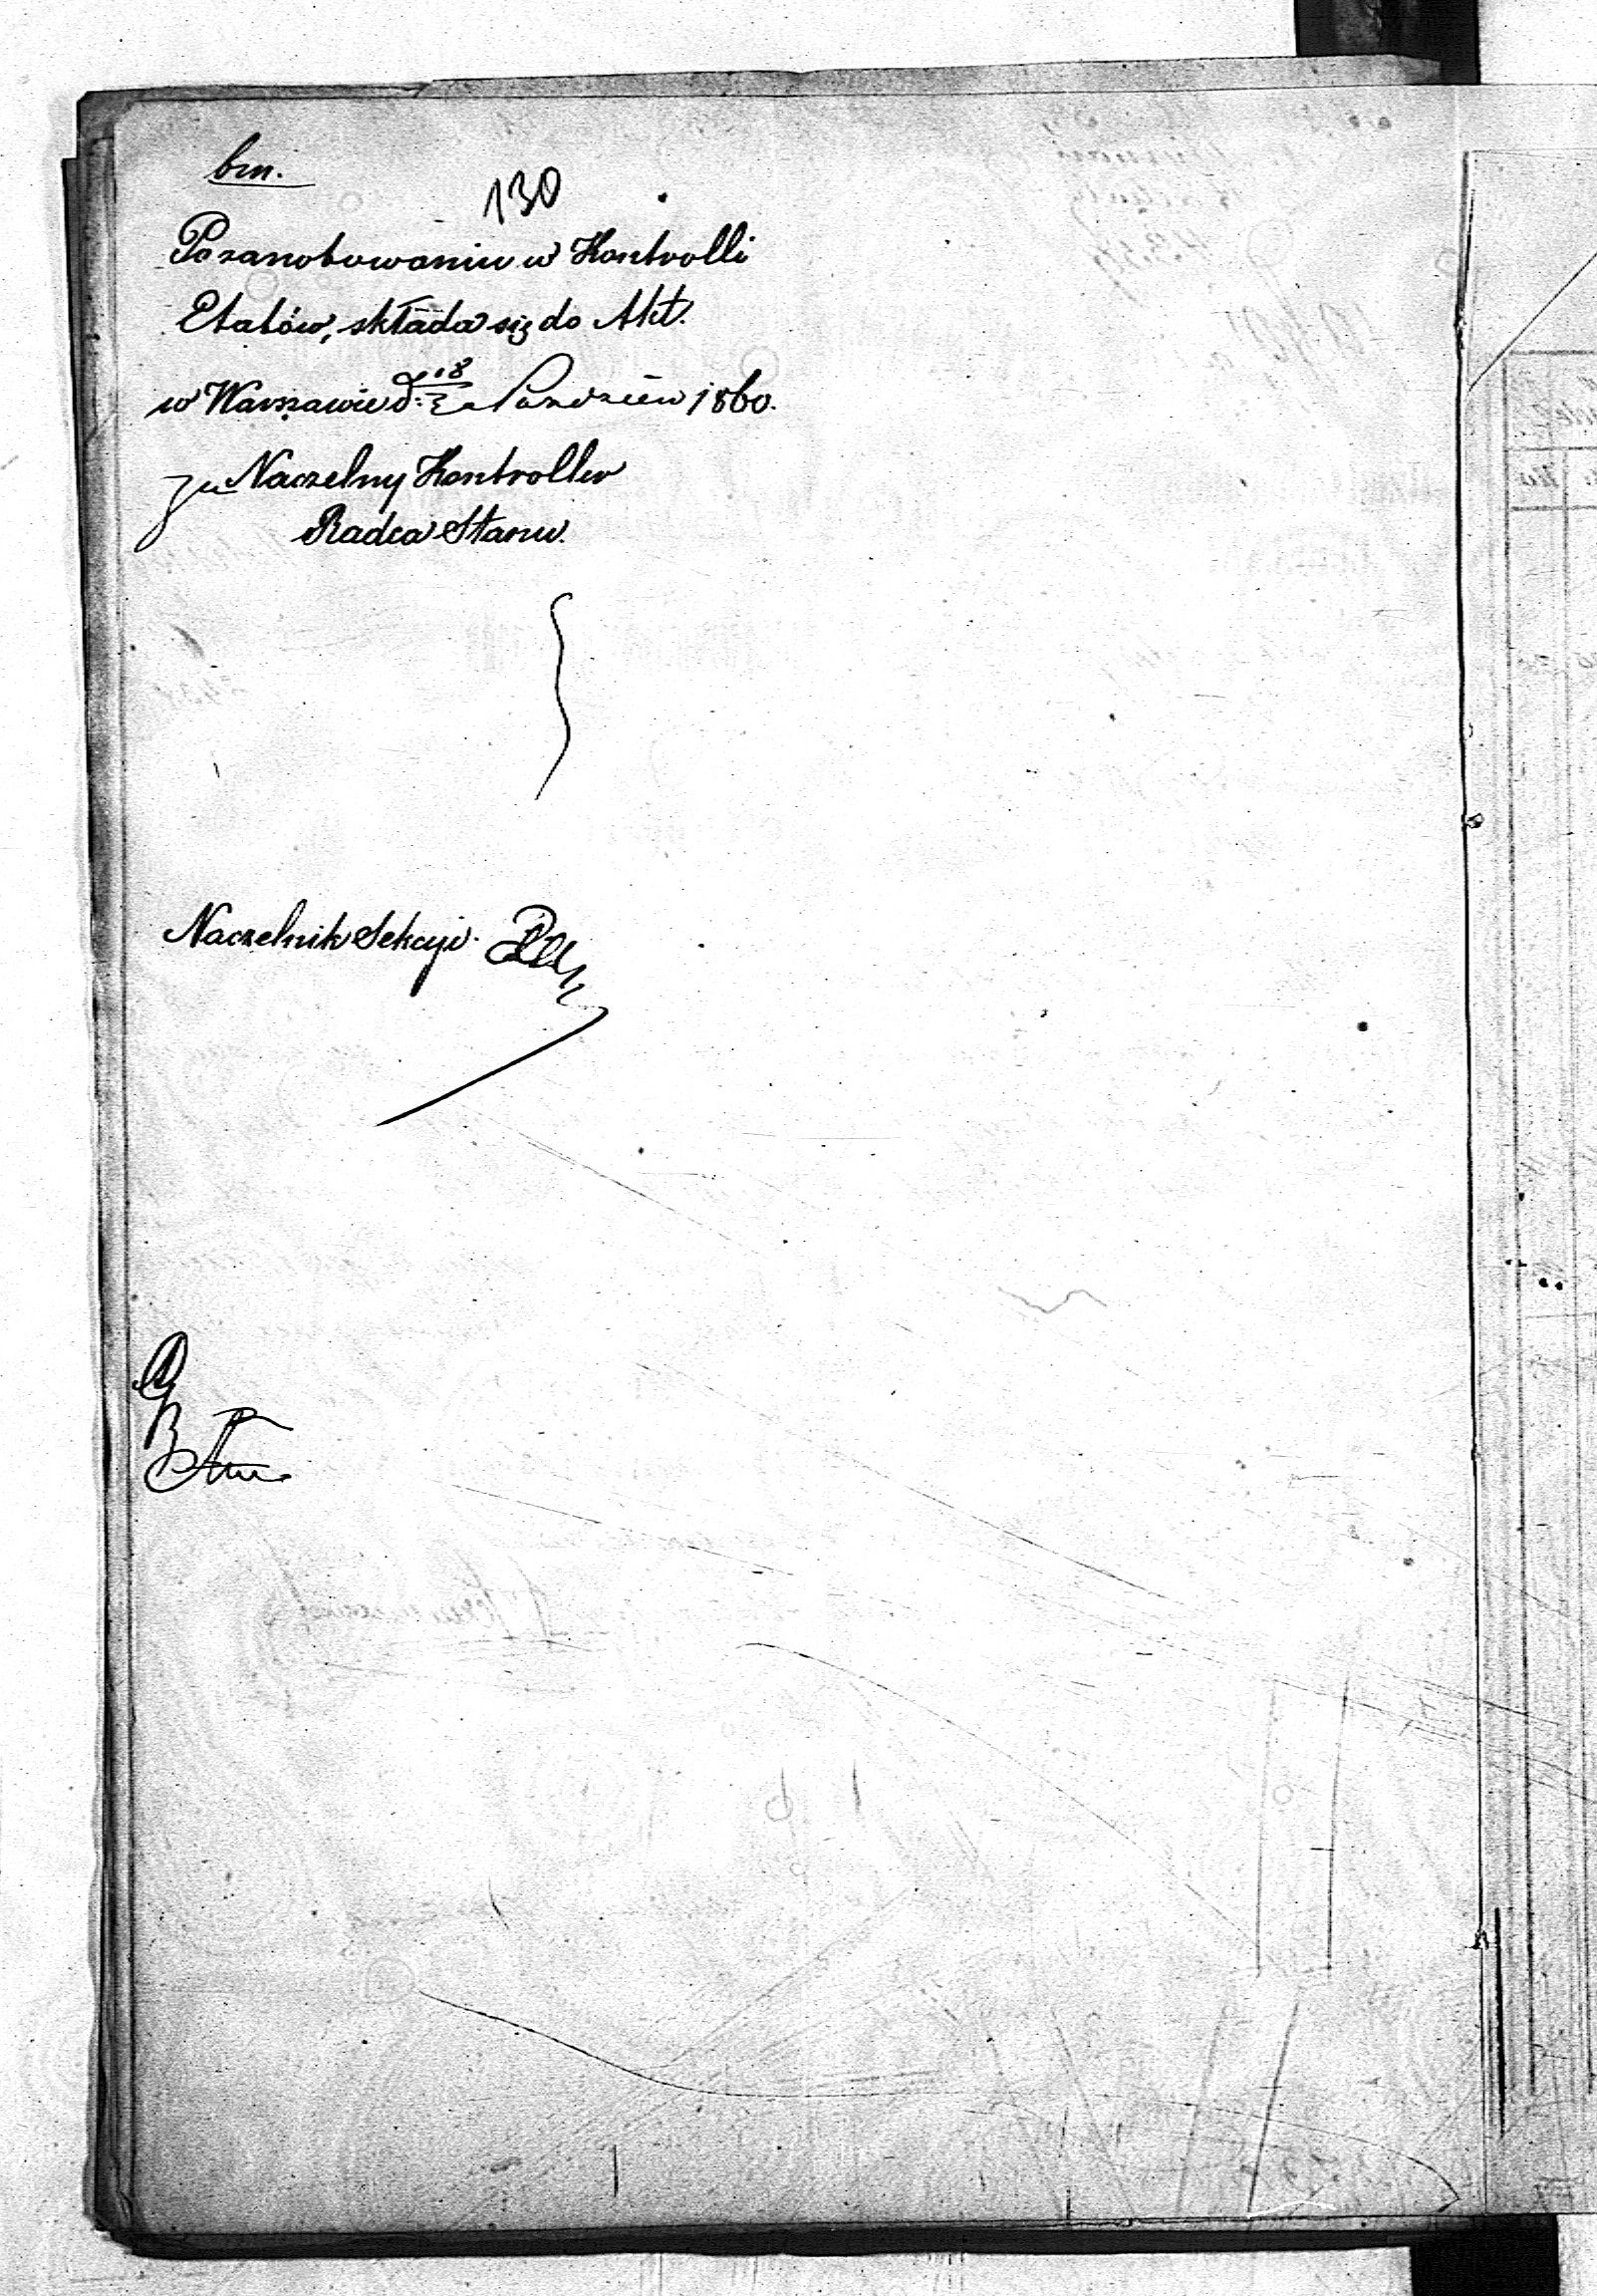 bm.
130
Po zanotowaniu w Kontrolli
Etatów, składa się do Akt.
w Warszawie d. 18 Paździer 1860.
za Naczelny Kontroller
Radca Stanu.
Naczelnik Sekcyi.